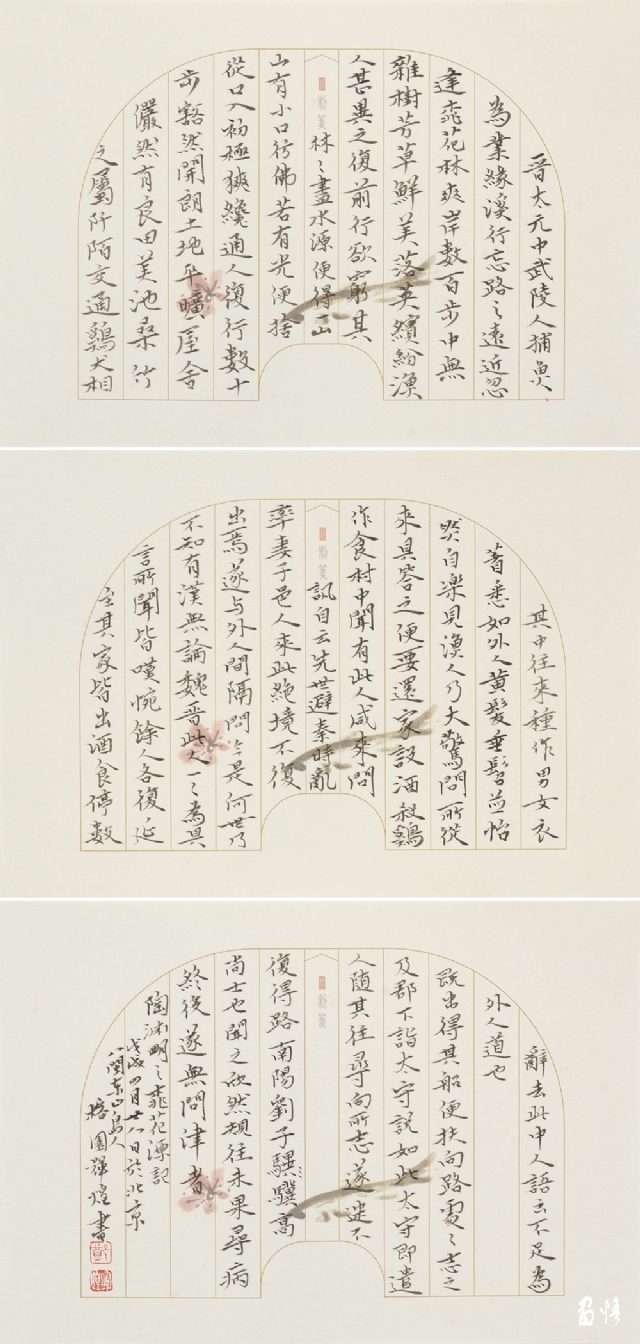 晋太元中武陵人捕魚
為業緣溪行忘路之遠近忽
逢桃花林夾岸數百步中無
雜樹芳草鮮美落英繽紛漁
人甚異之復前行欲窮其
林之盡水源便得一山
山有小口彷佛若有光便捨
從口入初極狹纔通人復行數十
步豁然開朗土地平曠屋舍
儼然有良田美池桑竹
之屬阡陌交通鷄犬相
其中往來種作男女衣
著悉如外人黄髮垂髫並怡
然自樂見漁人乃大驚問所從
來具答之便要還家設酒殺鷄
作食村中聞有此人咸來問
訊自云先世避秦時亂
率妻子邑人來此絶境不復
出焉遂与外人間隔問今是何世乃
不知有漢無論魏晋此人一一為具
言所聞皆嘆惋餘人各復延
至其家皆出酒食停數
辭去此中人語云不足為
外人道也
既出得其船便扶向路處處志之
及郡下詣太守説如此太守即遣
人随其往尋向所志遂迷不
復得路南陽劉子驥高
尚士也聞之欣然規往未果尋病
終後遂無問津者
陶淵明之桃花源記
戊戌四月廿八日於北京